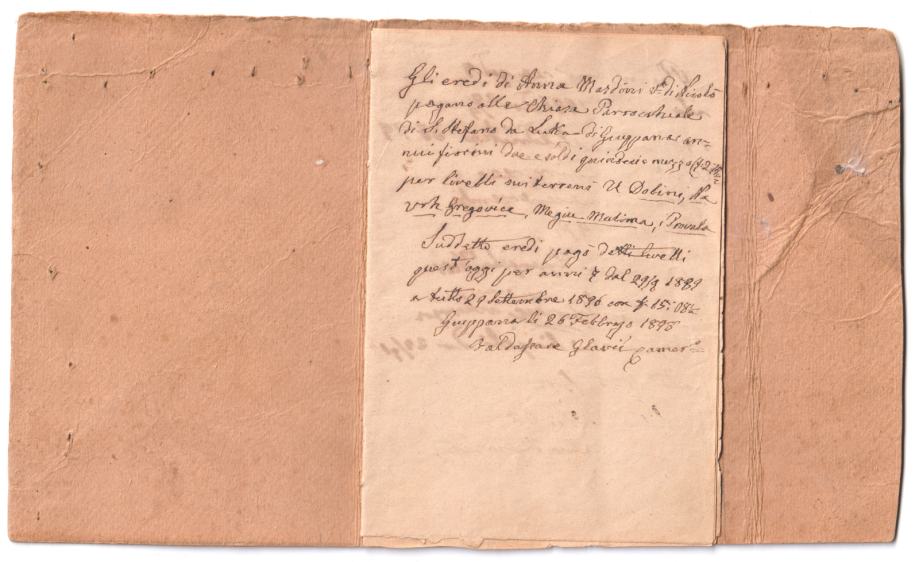 Gli eredi di Anna di Nicolò
pagano alla Chiesa Parrocchiale
di S. Stefano da Luka di Giuppana an=
nui fiorini due e soldi quindeci e mezzo
per livelli sui terreni U Dolinu, Na
vrh Gregovica, Megiu Mulima,
Suddetto eredi pagò detti livelli
quest'oggi per anni 7 dal 29/9 1889
a tutto 29 Settembre 1896 con f. 15:08
Giuppana li 26 Febbrajo
Baldassare Glavić